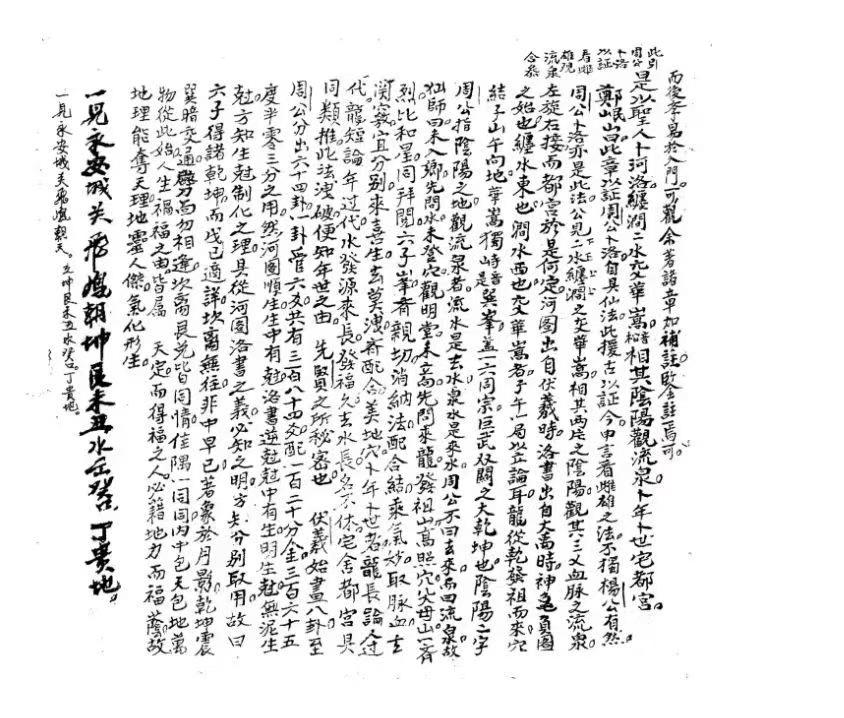 此引
周公
卜洛
以証
看雌
雄观
流泉
合叅
而後学易於入門可觀余著諸章加補註启註焉可
是以聖人卜河洛纏澗二水交華嵩相其陰陽觀流泉卜年卜世宅都宮
鄭岷山曰此章以証周公卜洛自具仙法此援古以証今申言看雌雄之法不獨楊公有然
周公卜洛亦是此法公見二水纏澗之交華嵩相其兩片之陰陽觀其三叉血脉之流泉
左旋右接而都宮於是何定河圖出自伏羲時洛書出自大禹時神龟負圖
之始也纏水東也澗水西也交華嵩者子午一局以立論耳龍從乾發祖而來穴
結子山午向地華嵩獨峙是巽峯蓋一六同宗巨武双關之大乾坤也陰陽二字
周公指陰陽之地觀流泉者流水是去水泉水是來水周公不曰去來而曰流泉故
仙師曰未入鄉先問水未登穴觀明堂未立向先問來龍發祖山高照穴父母山一齊
烈比和星同拜閱六子峯者親切消納法配合結乘氣妙取脉血玄
関竅宜分别來喜生去莫洩斉配合美地穴卜年卜世者龍長論人过
代龍短論年过代水發源來長發福久去水長名不休宅舍都宮具
同類推此法洩破便知年世之由 先贤之所秘密也 伏義始畫八卦至
周公分出六十四卦一卦管六爻共有三百八十四爻配一百二十分金三百六十五
度半零三分之用然河圖順生生中有尅洛書逆尅尅中有生明生尅無泥生
尅方知生尅制化之理具從河圖洛書之義必知之明方为分别取用故曰
六子得諸乾坤而戊己適詳坎離無往非中早已著象於月影乾坤震
巽暗交通艮而勿相逢坎离艮兑皆同情信隅一同同内中包天包地萬
物從此始人生禍福之由皆屬 天定而得福之人必籍地力而福蔭故
地理能奪天理地靈人傑氣化形生
一見永安城关飛鳯朝坤艮未丑水丘癸 丁貴地
一見永安城关飛鳯朝天 立坤艮未丑水癸 丁貴地